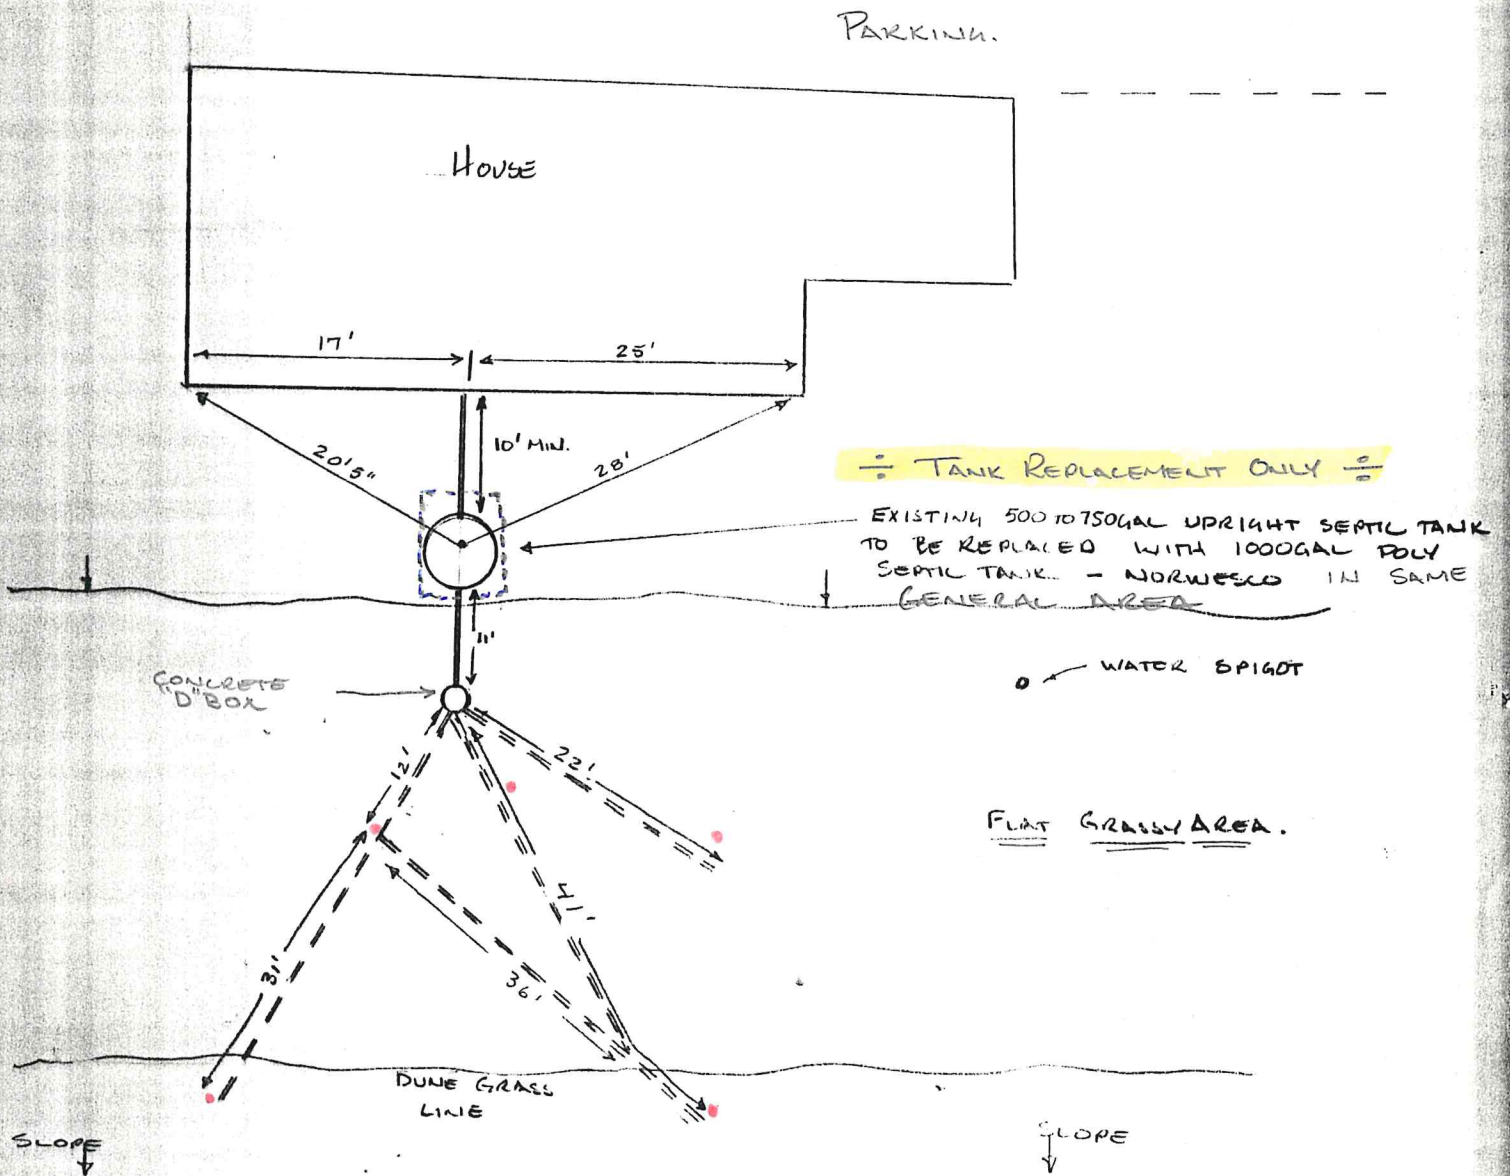 PARKING.
HOUSE
17'
25'
10' MIN.
20'5"
28'
÷ TANK REPLACEMENT ONLY ÷
EXISTING 500 TO 750GAL UPRIGHT SEPTIC TANK
TO BE REPLACED WITH 1000GAL POLY
SEPTIC TANK - NORWESCO IN SAME
GENERAL AREA
11'
WATER SPIGOT
CONCRETE
"D" BOX
22'
12'
FLAT GRASSY AREA.
31'
36'
DUNE GRASS
LINE
SLOPE
SLOPE